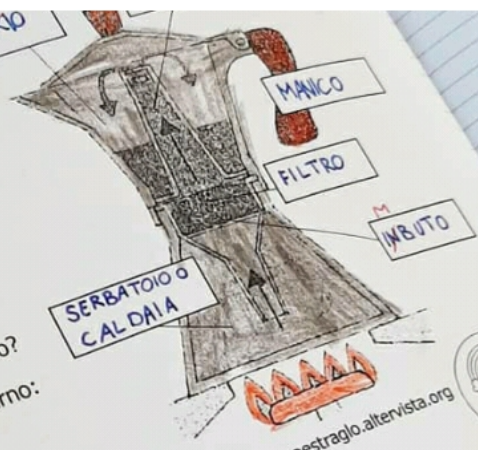 MANICO
FILTRO
M
INBUTO
SERBATOIO O
CALDAIA
o?
rno:
estraglo.altervista.org